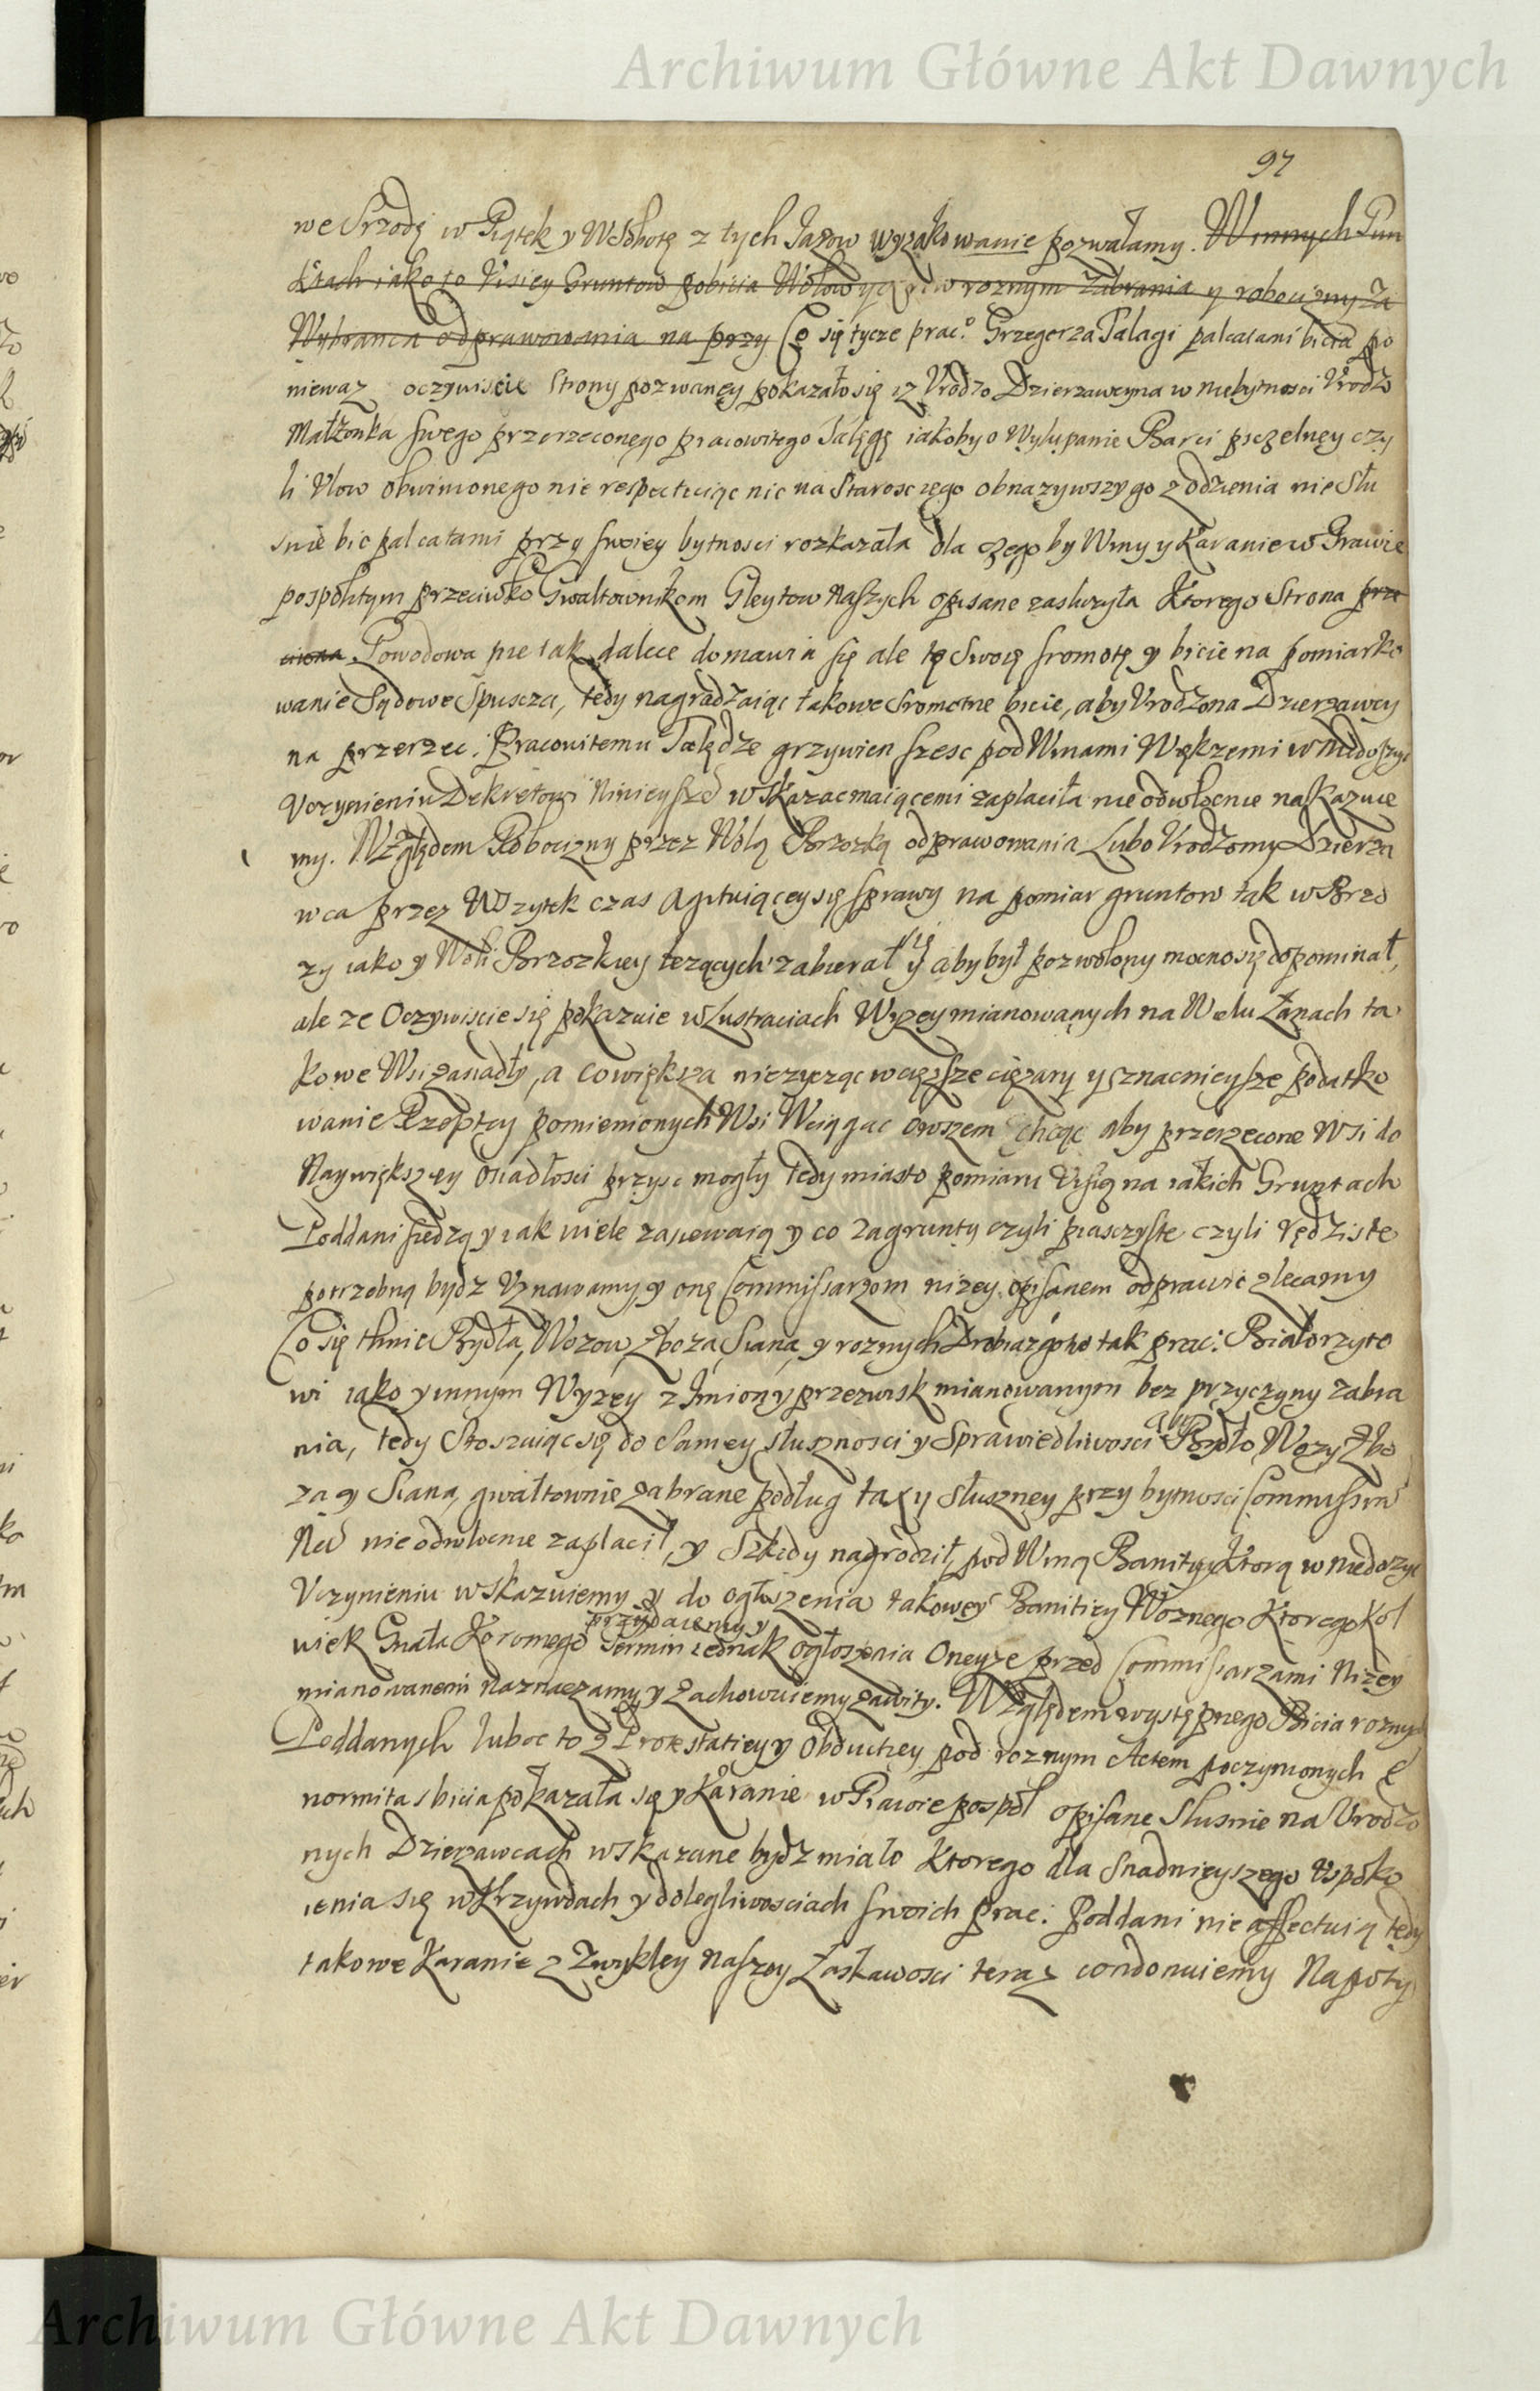 Archiwum Główne Akt Dawnych
97
we Srzodę w Piątek y W Sobotę z tych Jazow wyzakowanie pozwalamy. W innych Pun
ktach iako to Visiey Gruntow pobicia Wołow y roznym Zabrania y robocizny Za
Wybranca odprawowania na przy Co się tycze prac.° Grzegorza Talagi palcatami bicia po
niewaz oczywiscie Strony pozwaney pokazało się iz Vrodzo Dzierzawczyna w niebytnosci Vrodzo
Małzonka swego przerzeconego pracowitego Talęgę iakoby o Wyłupanie Barci pszczelney czy
li Vlow obwinionego nie respectuiąc nic na Starosc iego obnazywszy go z odzienia nie Słu
snie bic palcatami przy swoiey bytnosci rozkazała dla czego by Winy y Karanie w Prawie
pospolitym przeciwko Gwałtownikom Gleytow Naszych opisane zasłuzyła Ktorego Strona prze
ciwna Powodowa nie tak dalece domawia się ale tę Swoię sromotę y bicie na pomiarko
wanie Sądowe Spuszcza, tedy nagradzaiąc takowe Sromotne bicie, aby Vrodzona Dzierzawczy
na przerzec: Pracowitemu Talędze grzywien szesc pod Winami Więkzemi w Niedosyc
Vczynieniu Dekretowi Ninieysze wskazac maiącemi zapłaciła nieodwłocznie nakazuie
my. Względem Robocizny przez Wolą Brzozką odprawowania Lubo Vrodzony Dzierza
wca przez Wszytek czas Agituiącey się sprawy na pomiar gruntow tak w Brzo
zy iako y Woli Brzozkiey lezących zabierał się y aby był pozwolony mocno się dopominał,
ale ze Oczywiscie się pokazuie w Lustraciach Wyzey mianowanych na Wielu Łanach ta
kowe Wsi zasiadły, a co większa nie zycząc w cięzsze cięzary y znacznieysze podatko
wanie Rzeptey pomienionych Wsi Wciągac owszem chcąc aby przerzecone Wsi do
Naywiększey osiadłosci przysc mogły tedy miasto pomiaru Visią na iakich Gruntach
Poddani siedzą y iak wiele zasiewaią y co za grunty czyli piasczyste czyli rędziste
potrzebną bydz Vznawamy y onę Commissarzom nizey opisanem odprawic zlecamy
Co się tknie Bydła, Wozow, Zboza, Siana y roznych Drobiazgow tak prac: Białorzyto
wi iako y innym Wyzey z Imion y przezwisk mianowanym bez przyczyny zabra
nia, tedy Stosuiąc się do Samey słusznosci y Sprawiedliwosci aby Bydło Wozy Zbo
za y Siana gwałtownie zabrane podług taxy słuszney przy bytnosci Commissa
Nie odwłocznie zapłacił, y Szkody nagrodził, pod Winą Banitiey Ktorą w niedosyc
Vczynieniu wskazuiemy y do ogłoszenia takowey Banitiey Woznego Ktoregokol
przydaiemy y
wiek Gnała Koronnego Termin iednak ogłoszenia Oneyze przed Commissarzami Nizey
mianowanemi naznaczamy y zachowuiemy zawity. Względem występnego Bicia roznych
Poddanych luboc to z Protestatiey y Obductiey pod roznym Actem poczynionych E
normitas bicia pokazała się y Karanie w Prawie pospol opisane Słusnie na Vrodzo
nych Dzierzawcach wskazane bydz miało Ktorego dla Snadnieyszego Vspoko
ienia się w Krzywdach y dolegliwosciach swoich prac: Poddani nie affectuią tedy
takowe Karanie z Zwykley Naszey Łaskawosci teraz condonuiemy Na poty
Archiwum Główne Akt Dawnych